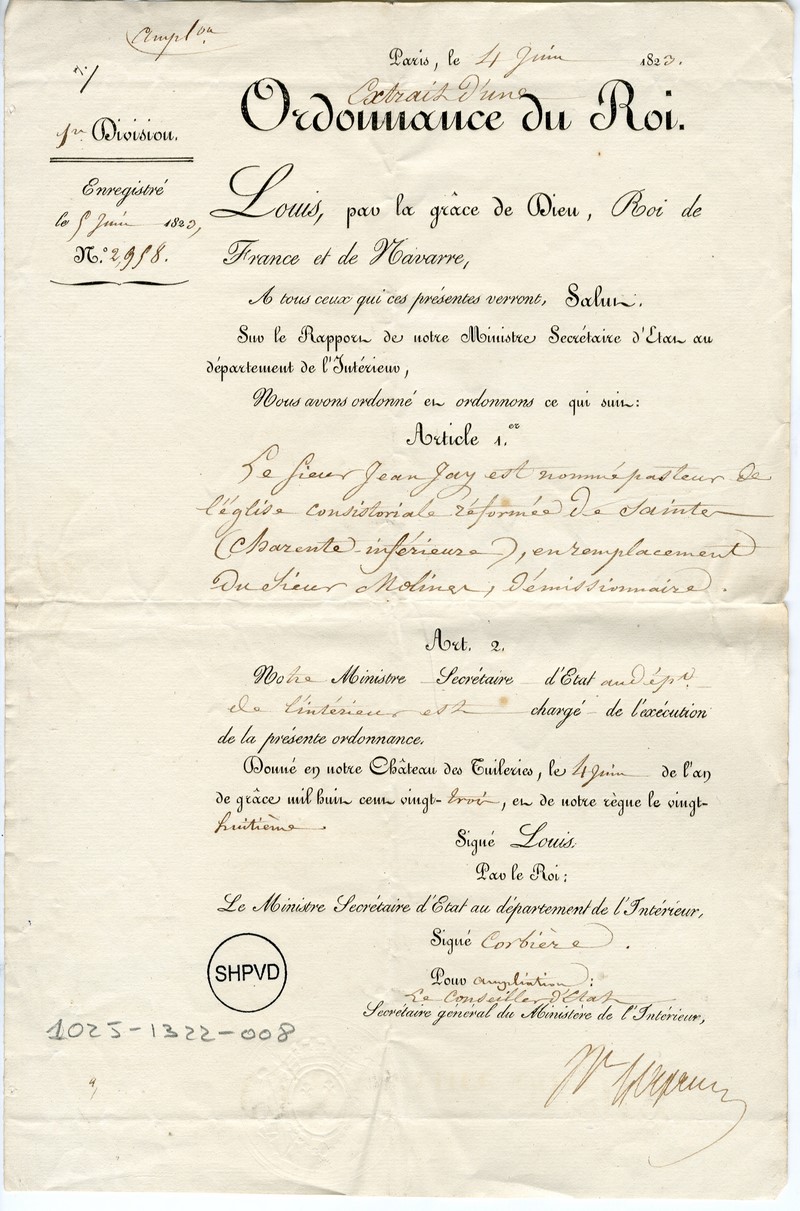 Ampl.on
Paris, le 4 Juin 1823.
Extrait d'une
Ordonnance du Roi.
1re Division.
Enregistré
le 5 Juin 1823,
N.o 2,958.
Louis, par la grâce de Dieu, Roi de
France et de Navarre,
A tous ceux qui ces présentes verront, Salut.
Sur le Rapport de notre Ministre Secrétaire d'Etat au
département de l'Intérieur,
Nous avons ordonné et ordonnons ce qui suit:
Article 1.er
Le Sieur Jean Jay est nommé pasteur de
l'église consistoriale réformée de Sainte
(Charente-inférieure), en remplacement
du Sieur Moliner, démissionnaire.
Art. 2.
Notre Ministre Secrétaire d'Etat au dépt.
de l'intérieur est chargé de l'exécution
de la présente ordonnance.
Donné en notre Château des Tuileries, le 4 Juin de l'an
de grâce mil huit cent vingt-trois, et de notre règne le vingt-
huitième
Signé Louis.
Par le Roi:
Le Ministre Secrétaire d'Etat au département de l'Intérieur,
Signé Corbière.
Pour ampliation:
Le Conseiller d'Etat
Secrétaire général du Ministère de l'Intérieur,
SHPVD
1025-1322-008